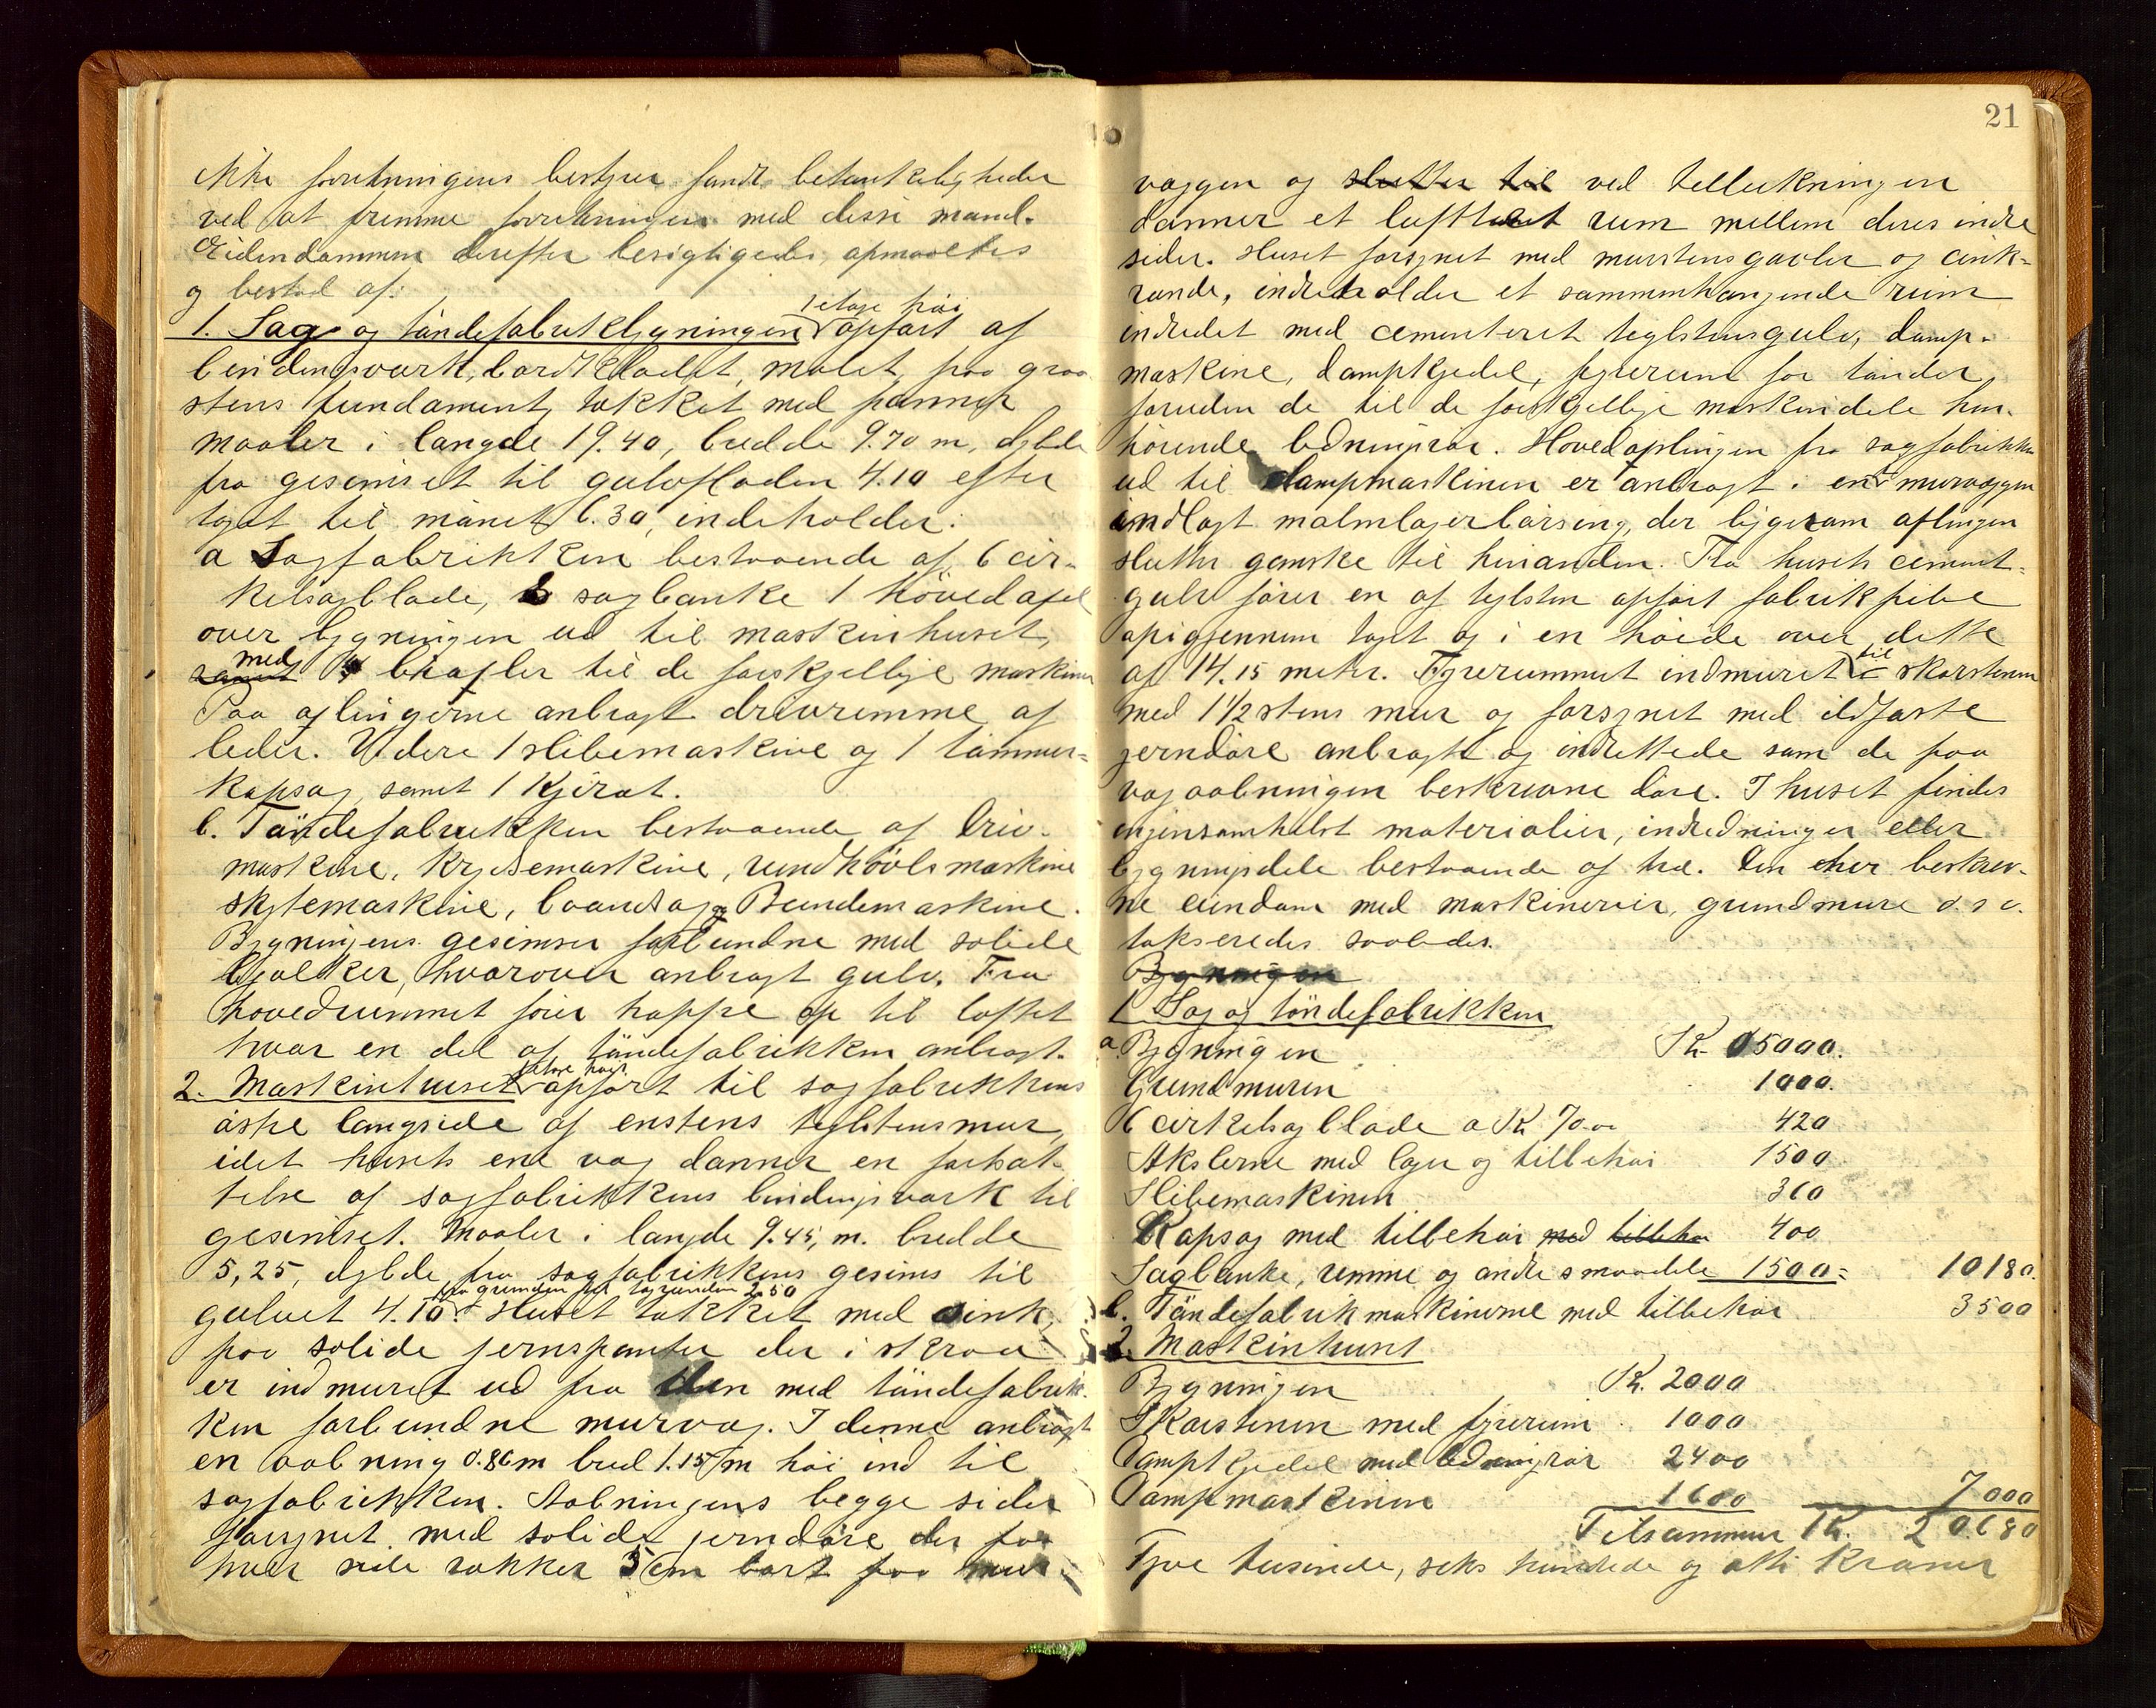 ikke forretningens bestyrer fandt betænkeligheder
ved at fremme forretningen med disse mænd.
Eiendommen derefter besigtigedes, opmaaltes
og bestod af:
1 etage høi
1. Sag og tøndefabrikbygningen opført af
bindingsværk, bordklædet, malet, paa graa
stens fundament, tækket med panner
maaler i længde 19.40, bredde 9.70 m, dybde
fra gesimset til gulvfladen 4.10 efter
taget til mønet 6.30, indeholder:
a Sagfabrikken bestaaende af 6 cir-
kelsagblade, sagbænke 1 hovedaxel
over bygningen ud til maskinhuset,
med
samt 4 biaxler til de forskjellige maskiner
Paa axlingerne anbragt drivremme af
læder. Videre 1 slibemaskine og 1 tømmer=
kapsag, samt 1 kjerat.
b. Tøndefabrikken bestaaende af driv-
maskine, krydsemaskine, rundhøvlsmaskine
skytemaskine, baandsag og Bundemaskine.
Bygningens gesimser forbundne med solide
bjælker, hvorover anbragt gulv. Fra
hovedrummet fører trappe op til loftet
hvor en del af tøndefabrikken anbragt.
1 etage høit
2. Maskinhuset opført til sagfabrikkens
østre langside af enstens teglstensmur,
idet husets ene væg danner en fortsæt-
telse af sagfabrikkens bindingsværk til
gesimset. Maaler i længde 9.45, m. bredde
5,25, dybde fra sagfabrikkens gesims til
fra grunden til 2.50
gulvet 4.10. Huset tækket med sink,
paa solide jernspanter der i skraa
er indmuret ud fra den med tøndefabrik-
ken forbundne murvæg. I denne anbragt
en aabning 0.86 m bred 1.15 m høi ind til
sagfabrikken. Aabningens begge sider
forsynet med solide jerndøre der paa
hver side rækker 5 cm bort paa mur-
21
væggen og slutter til ved tillukningen
danner et lufttæt rum mellem deres indre
sider. Huset forsynet med murstensgavler og cink=
rande, indeholder et sammenhængende rum
indredet med cementeret teglstensgulv, damp-
maskine, dampkjedel, fyrerum for tønder,
foruden de til de forskjellige maskindele hen-
hørende ledningsrør. Hovedaxlingen fra sagfabrikken
ud til dampmaskinen er anbragt i en i murvæggen
indlagt malmlagerbøssing, der ligesom axlingen
slutter ganske til hinanden. Fra husets cement-
gulv fører en af teglsten opført fabrikpibe
op igjennem taget og i en høide over dette
til
af 14.15 meter. Fyrerummet indmuret i skorstenen
med 1 1/2 stens mur og forsynet med ildfaste
jerndøre anbragt og indrettede som de paa
vægaabningen beskrevne døre. I huset findes
ingensomhelst materialier, indredninger eller
bygningsdele bestaaende af træ. Den her beskrev-
ne eiendom med maskinerier, grundmure o.s.v.
takseredes saaledes.
Bygningen
1 Sag og tøndefabrikken
a. Bygningen Kr. 5000.
Grundmuren 1000.
6 cirkelsagblade a Kr 70.00 420
Akslerne med lager og tilbehør 1500
Slibemaskinen 360
Kapsag med tilbehør med tilbehør 400
Sagbænke, remme og andre smaadele 1500= 10180.
b. Tøndefabrikmaskinerne med tilbehør 3500
2. Maskinhuset
Bygningen Kr. 2000
Skorstenen med fyrerum 1000
Dampkjedel med ledningsrør 2400
Dampmaskinen 1600 7000
Tilsammen Kr. 20680
Tyve tusinde, seks hundrede og otti Kroner